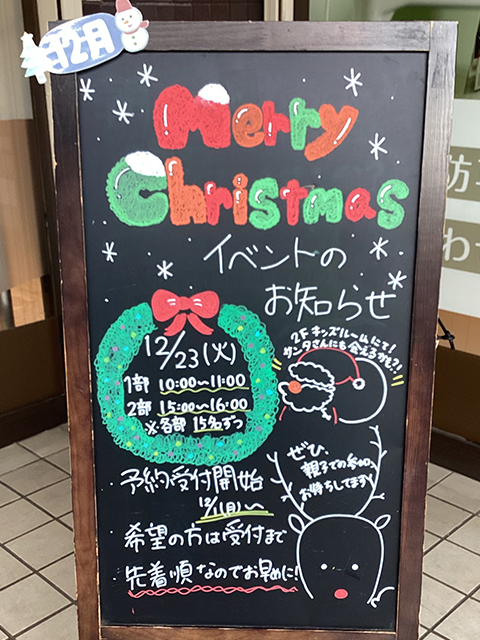 12月
Merry
Christmas
イベントの
お知らせ
12/23(火)
1部 10:00〜11:00
2部 15:00〜16:00
※各部 15名ずつ
2F キッズルームにて!
サンタさんにも会えるかも?!
・予約受付開始
12/1(月)〜
ぜひ、
親子での参加
お待ちしてます
・希望の方は受付まで
・先着順なのでお早めに!